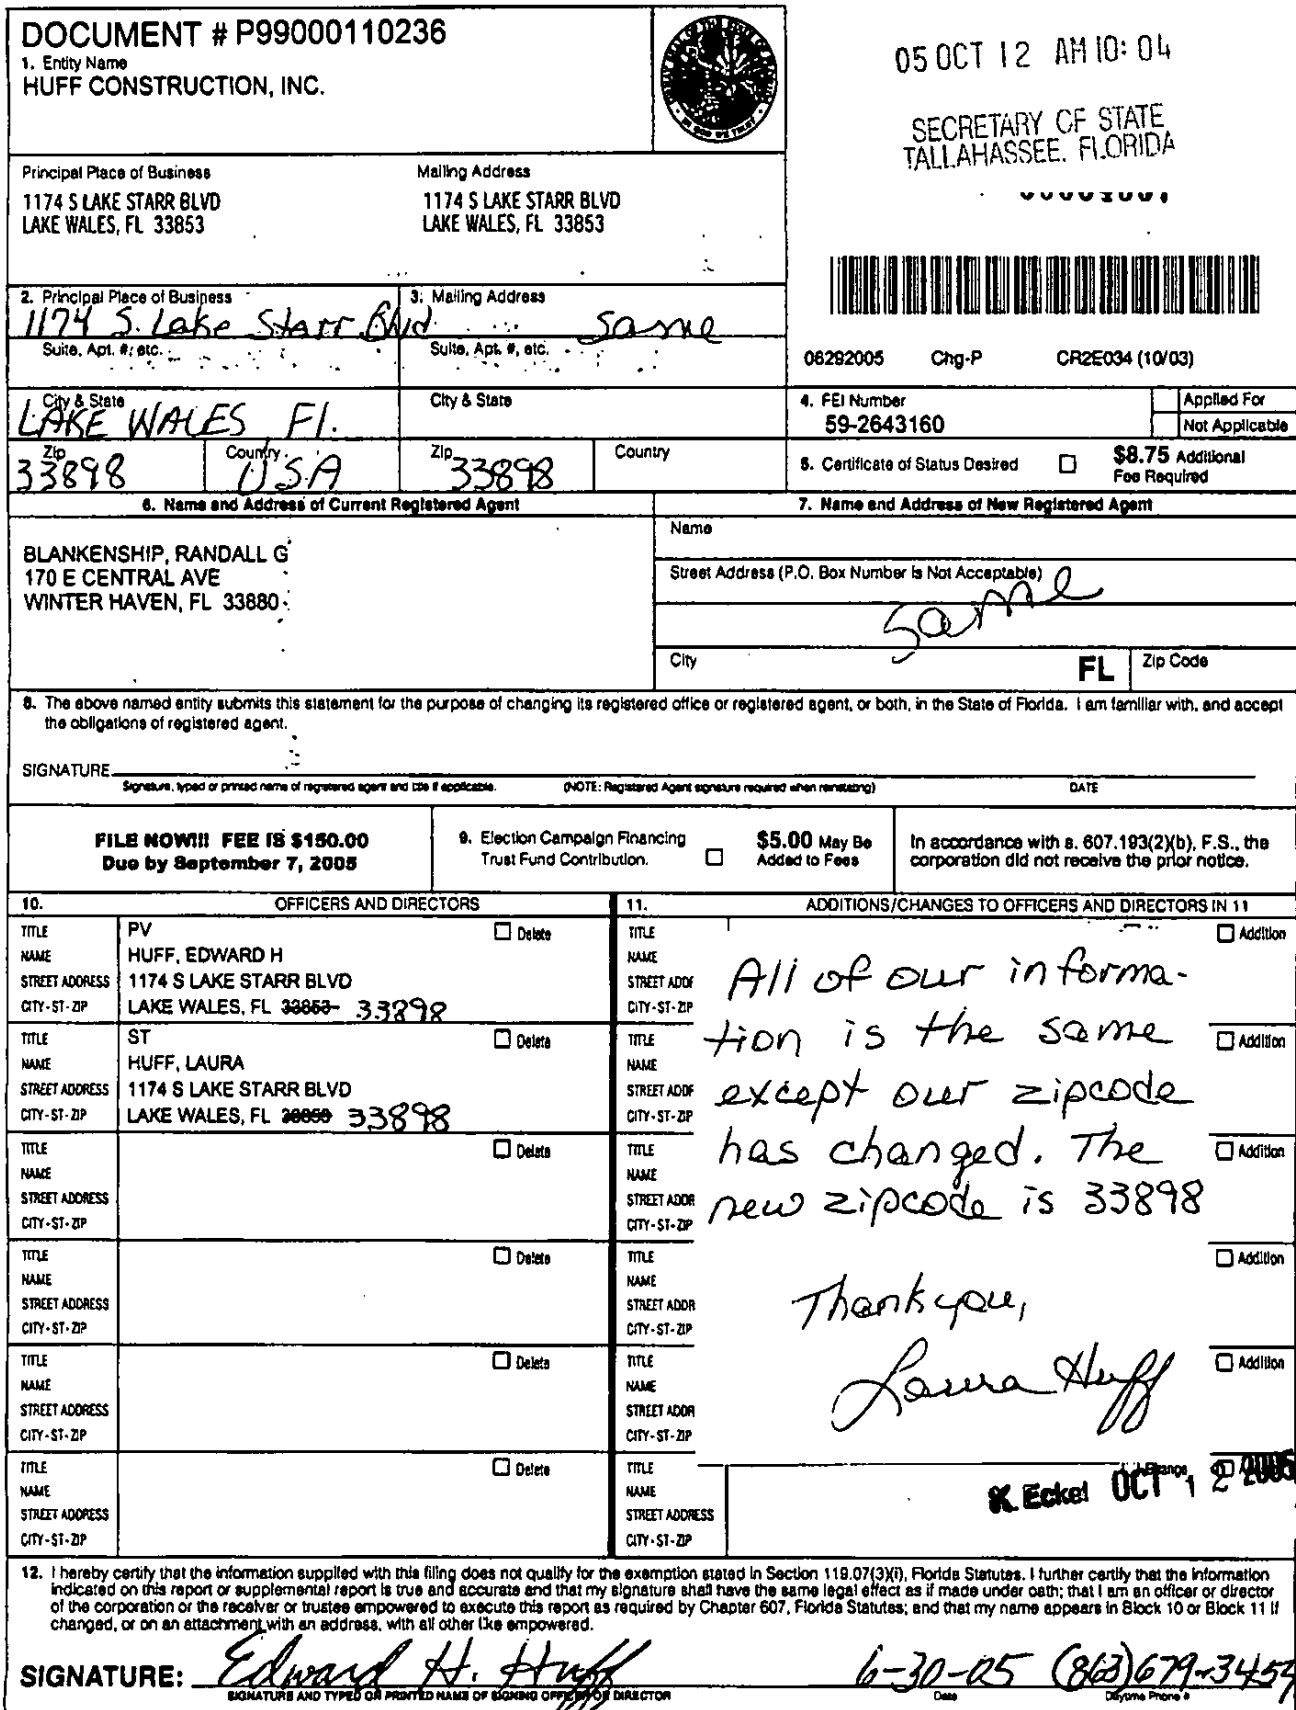 DOCUMENT # P99000110236
1. Entity Name
HUFF CONSTRUCTION, INC.
05 OCT 12 AM 10: 04
SECRETARY OF STATE
TALLAHASSEE, FLORIDA
Principal Place of Business
Mailing Address
1174 S LAKE STARR BLVD
LAKE WALES, FL 33853
1174 S LAKE STARR BLVD
LAKE WALES, FL 33853
2. Principal Place of Business
1174 S. Lake Starr Blvd
3. Mailing Address
Same
Suite, Apt. #, etc.
Suite, Apt. #, etc.
06292005 Chg-P CR2E034 (10/03)
City & State
LAKE WALES Fl.
City & State
4. FEI Number
59-2643160
Applied For
Not Applicable
Zip
33898
Country
USA
Zip
33898
Country
5. Certificate of Status Desired ☐ $8.75 Additional
Fee Required
6. Name and Address of Current Registered Agent
7. Name and Address of New Registered Agent
BLANKENSHIP, RANDALL G
170 E CENTRAL AVE
WINTER HAVEN, FL 33880
Name
Street Address (P.O. Box Number is Not Acceptable)
Same
City
FL
Zip Code
8. The above named entity submits this statement for the purpose of changing its registered office or registered agent, or both, in the State of Florida. I am familiar with, and accept
the obligations of registered agent.
SIGNATURE
Signature, typed or printed name of registered agent and title if applicable. (NOTE: Registered Agent signature required when reinstating) DATE
FILE NOW!!! FEE IS $150.00
Due by September 7, 2005
9. Election Campaign Financing
Trust Fund Contribution. ☐
$5.00 May Be
Added to Fees
In accordance with s. 607.193(2)(b), F.S., the
corporation did not receive the prior notice.
10. OFFICERS AND DIRECTORS
11. ADDITIONS/CHANGES TO OFFICERS AND DIRECTORS IN 11
TITLE PV ☐ Delete
NAME HUFF, EDWARD H
STREET ADDRESS 1174 S LAKE STARR BLVD
CITY-ST-ZIP LAKE WALES, FL 33853 33898
TITLE ST ☐ Delete
NAME HUFF, LAURA
STREET ADDRESS 1174 S LAKE STARR BLVD
CITY-ST-ZIP LAKE WALES, FL 33853 33898
TITLE ☐ Delete
NAME
STREET ADDRESS
CITY-ST-ZIP
TITLE ☐ Delete
NAME
STREET ADDRESS
CITY-ST-ZIP
TITLE ☐ Delete
NAME
STREET ADDRESS
CITY-ST-ZIP
TITLE ☐ Delete
NAME
STREET ADDRESS
CITY-ST-ZIP
TITLE ☐ Addition
NAME
STREET ADDF
CITY-ST-ZIP
TITLE ☐ Addition
NAME
STREET ADDF
CITY-ST-ZIP
TITLE ☐ Addition
NAME
STREET ADDR
CITY-ST-ZIP
TITLE ☐ Addition
NAME
STREET ADDR
CITY-ST-ZIP
TITLE ☐ Addition
NAME
STREET ADDR
CITY-ST-ZIP
TITLE
NAME
STREET ADDRESS
CITY-ST-ZIP
All of our informa-
tion is the same
except our zipcode
has changed. The
new zipcode is 33898
Thank you,
Laura Huff
K. Eckel OCT 12 2005
12. I hereby certify that the information supplied with this filing does not qualify for the exemption stated in Section 119.07(3)(i), Florida Statutes. I further certify that the information
indicated on this report or supplemental report is true and accurate and that my signature shall have the same legal effect as if made under oath; that I am an officer or director
of the corporation or the receiver or trustee empowered to execute this report as required by Chapter 607, Florida Statutes; and that my name appears in Block 10 or Block 11 if
changed, or on an attachment with an address, with all other like empowered.
SIGNATURE: Edward H. Huff 6-30-05 (863)679-3454
SIGNATURE AND TYPED OR PRINTED NAME OF SIGNING OFFICER OR DIRECTOR Date Daytime Phone #